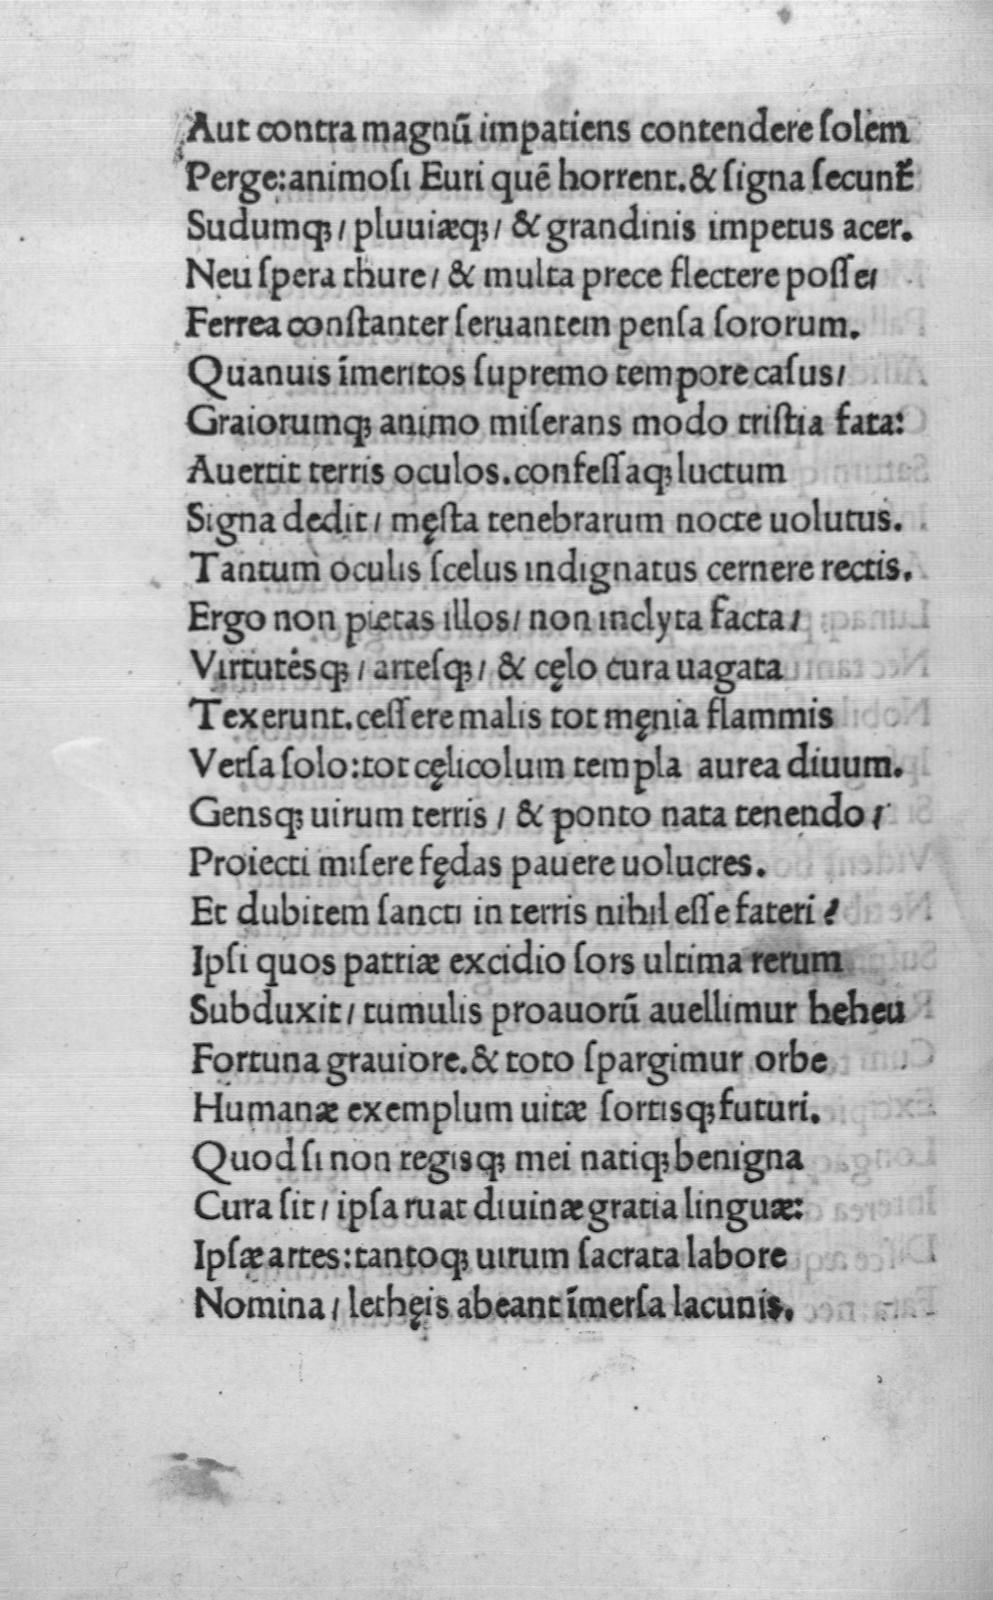 Aut contra magnū impatiens contendere ſolem
Perge:animoſi Euri quē horrent.& ſigna ſecunt̄
Sudumqꝫ / pluuiæqꝫ / & grandinis impetus acer.
Neu ſpera thure / & multa prece flectere poſſe /
Ferrea conſtanter ſeruantem penſa ſororum.
Quanuis īmeritos ſupremo tempore caſus /
Graiorumqꝫ animo miſerans modo triſtia fata:
Auertit terris oculos.confeſſaqꝫ luctum
Signa dedit / męſta tenebrarum nocte uolutus.
Tantum oculis ſcelus indignatus cernere rectis.
Ergo non pietas illos / non inclyta facta /
Virtutésqꝫ / arteſqꝫ / & cęlo cura uagata
Texerunt.ceſſere malis tot męnia flammis
Verſa ſolo:tot cęlicolum templa aurea diuum.
Gensqꝫ uirum terris / & ponto nata tenendo /
Proiecti miſere fędas pauere uolucres.
Et dubitem ſancti in terris nihil eſſe fateri ?
Ipſi quos patriæ excidio ſors ultima rerum
Subduxit / tumulis proauorū auellimur heheu
Fortuna grauiore.& toto ſpargimur orbe
Humanæ exemplum uitæ ſortisqꝫ futuri.
Quod ſi non regisqꝫ mei natiqꝫ benigna
Cura ſit / ipſa ruat diuinæ gratia linguæ:
Ipſæ artes:tantoqꝫ uirum ſacrata labore
Nomina / lethęis abeant īmerſa lacunis.